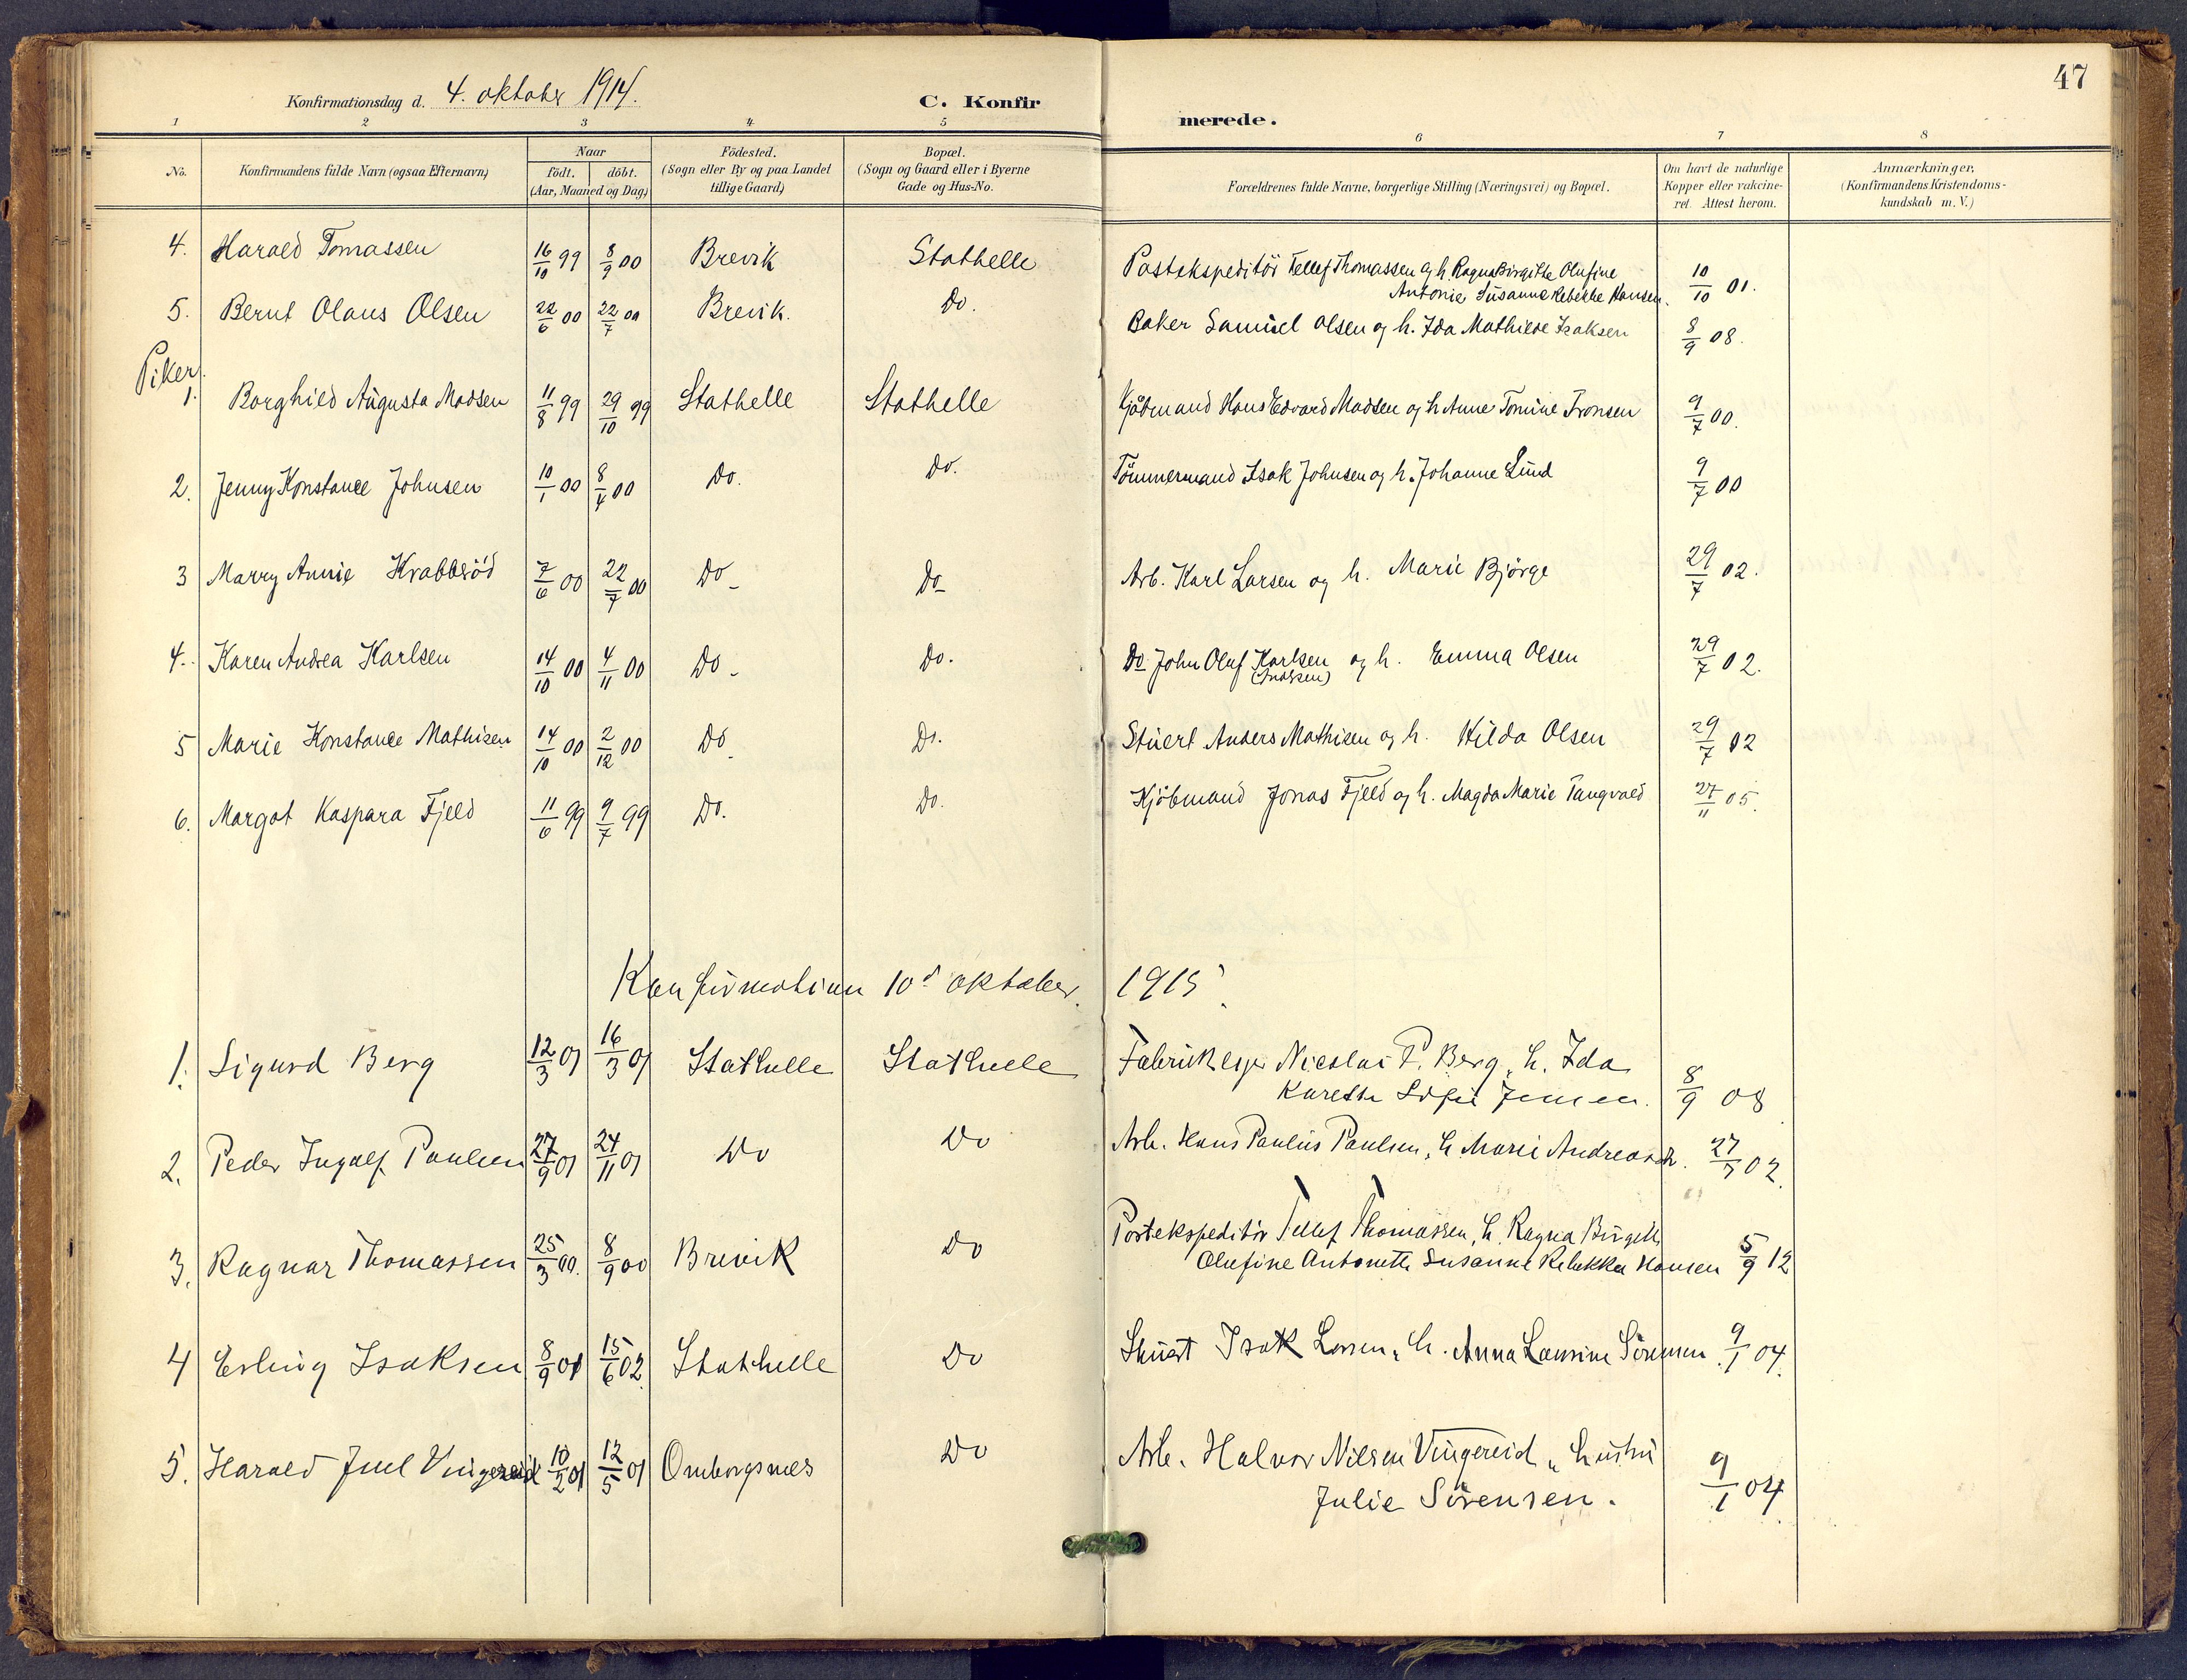 47
Konfirmationsdag d. 4. oktober 1914.
C. Konfirmerede.
1 2 3 4 5 6 7 8
No.
Konfirmandens fulde Navn (ogsaa Efternavn)
Naar
födt. döbt.
(Aar, Maaned og Dag)
Födested.
(Sogn eller By og paa Landet
tillige Gaard)
Bopæl.
(Sogn og Gaard eller i Byerne
Gade og Hus-No.
Forældrenes fulde Navne, borgerlige Stilling (Næringsvei) og Bopæl.
Om havt de naturlige
Kopper eller vakcine-
ret. Attest herom.
Anmærkninger.
(Konfirmandens Kristendoms-
kundskab m. V.)
4. Harald Tomassen 16/10 99 8/9 00 Brevik Stathelle Postekspeditör Tellef Thomassen og h. Ragna Birgithe Olufine
Antonie Susanne Rebekke Hansen. 10/10 01.
5. Bernt Olaus Olsen 22/6 00 22/7 00 Brevik. Do. Baker Samuel Olsen og h. Ida Mathilde Isaksen 8/9 08.
Piker.
1. Borghild Augusta Madsen 11/8 99 29/10 99 Stathelle Stathelle Kjöbmand Hans Edvard Madsen og h. Anne Tomine Tronsen 9/7 00.
2. Jenny Konstance Johnsen 10/1 00 8/4 00 Do. Do. Tömmermand Isak Johnsen og h. Johanne Lund 9/7 00
3 Marry Annie Krabberöd 7/6 00 22/7 00 Do- Do- Arb. Karl Larsen og h. Marie Björge 29/7 02.
4. Karen Andrea Karlsen 14/10 00 4/11 00 Do- Do. Do John Oluf Karlsen og h. Emma Olsen 29/7 02.
5 Marie Konstance Mathisen 14/10 00 2/12 00 Do- Do. Stuert Anders Mathisen og h. Hilda Olsen 29/7 02
6. Margot Kaspara Fjeld 11/6 99 9/7 99 Do. Do. Kjöbmand Jonas Fjeld og h. Magda Marie Tangvald 27/11 05.
Konfirmation 10d oktober 1915.
1. Sigurd Berg 12/3 01 16/3 01 Stathelle Stathelle Fabrikeier Nicolai P. Berg, h. Ida
Karethe Sofie Jensen. 8/9 08
2. Peder Ingolf Paulsen 27/9 01 24/11 01 Do Do Arb. Hans Paulus Paulsen, h. Marie 27/7 02.
3. Ragnar Thomassen 25/3 00. 8/9 00 Brevik Do Postekspeditör Tellef Thomassen, h. Ragna Birgith
Olufine Antonette Susanne Rebekka Hansen 5/9 12
4 Erling Isaksen 8/9 01 15/6 02. Stathelle Do Stuert Isak Larsen, h. Anna Laurine Sörensen. 9/1 04.
5. Harald Juel Vingereid 10/2 01 12/5 01 Omborgsnes Do Arb. Halvor Nilsen Vingereid, hustru
Julie Sörensen. 9/1 04